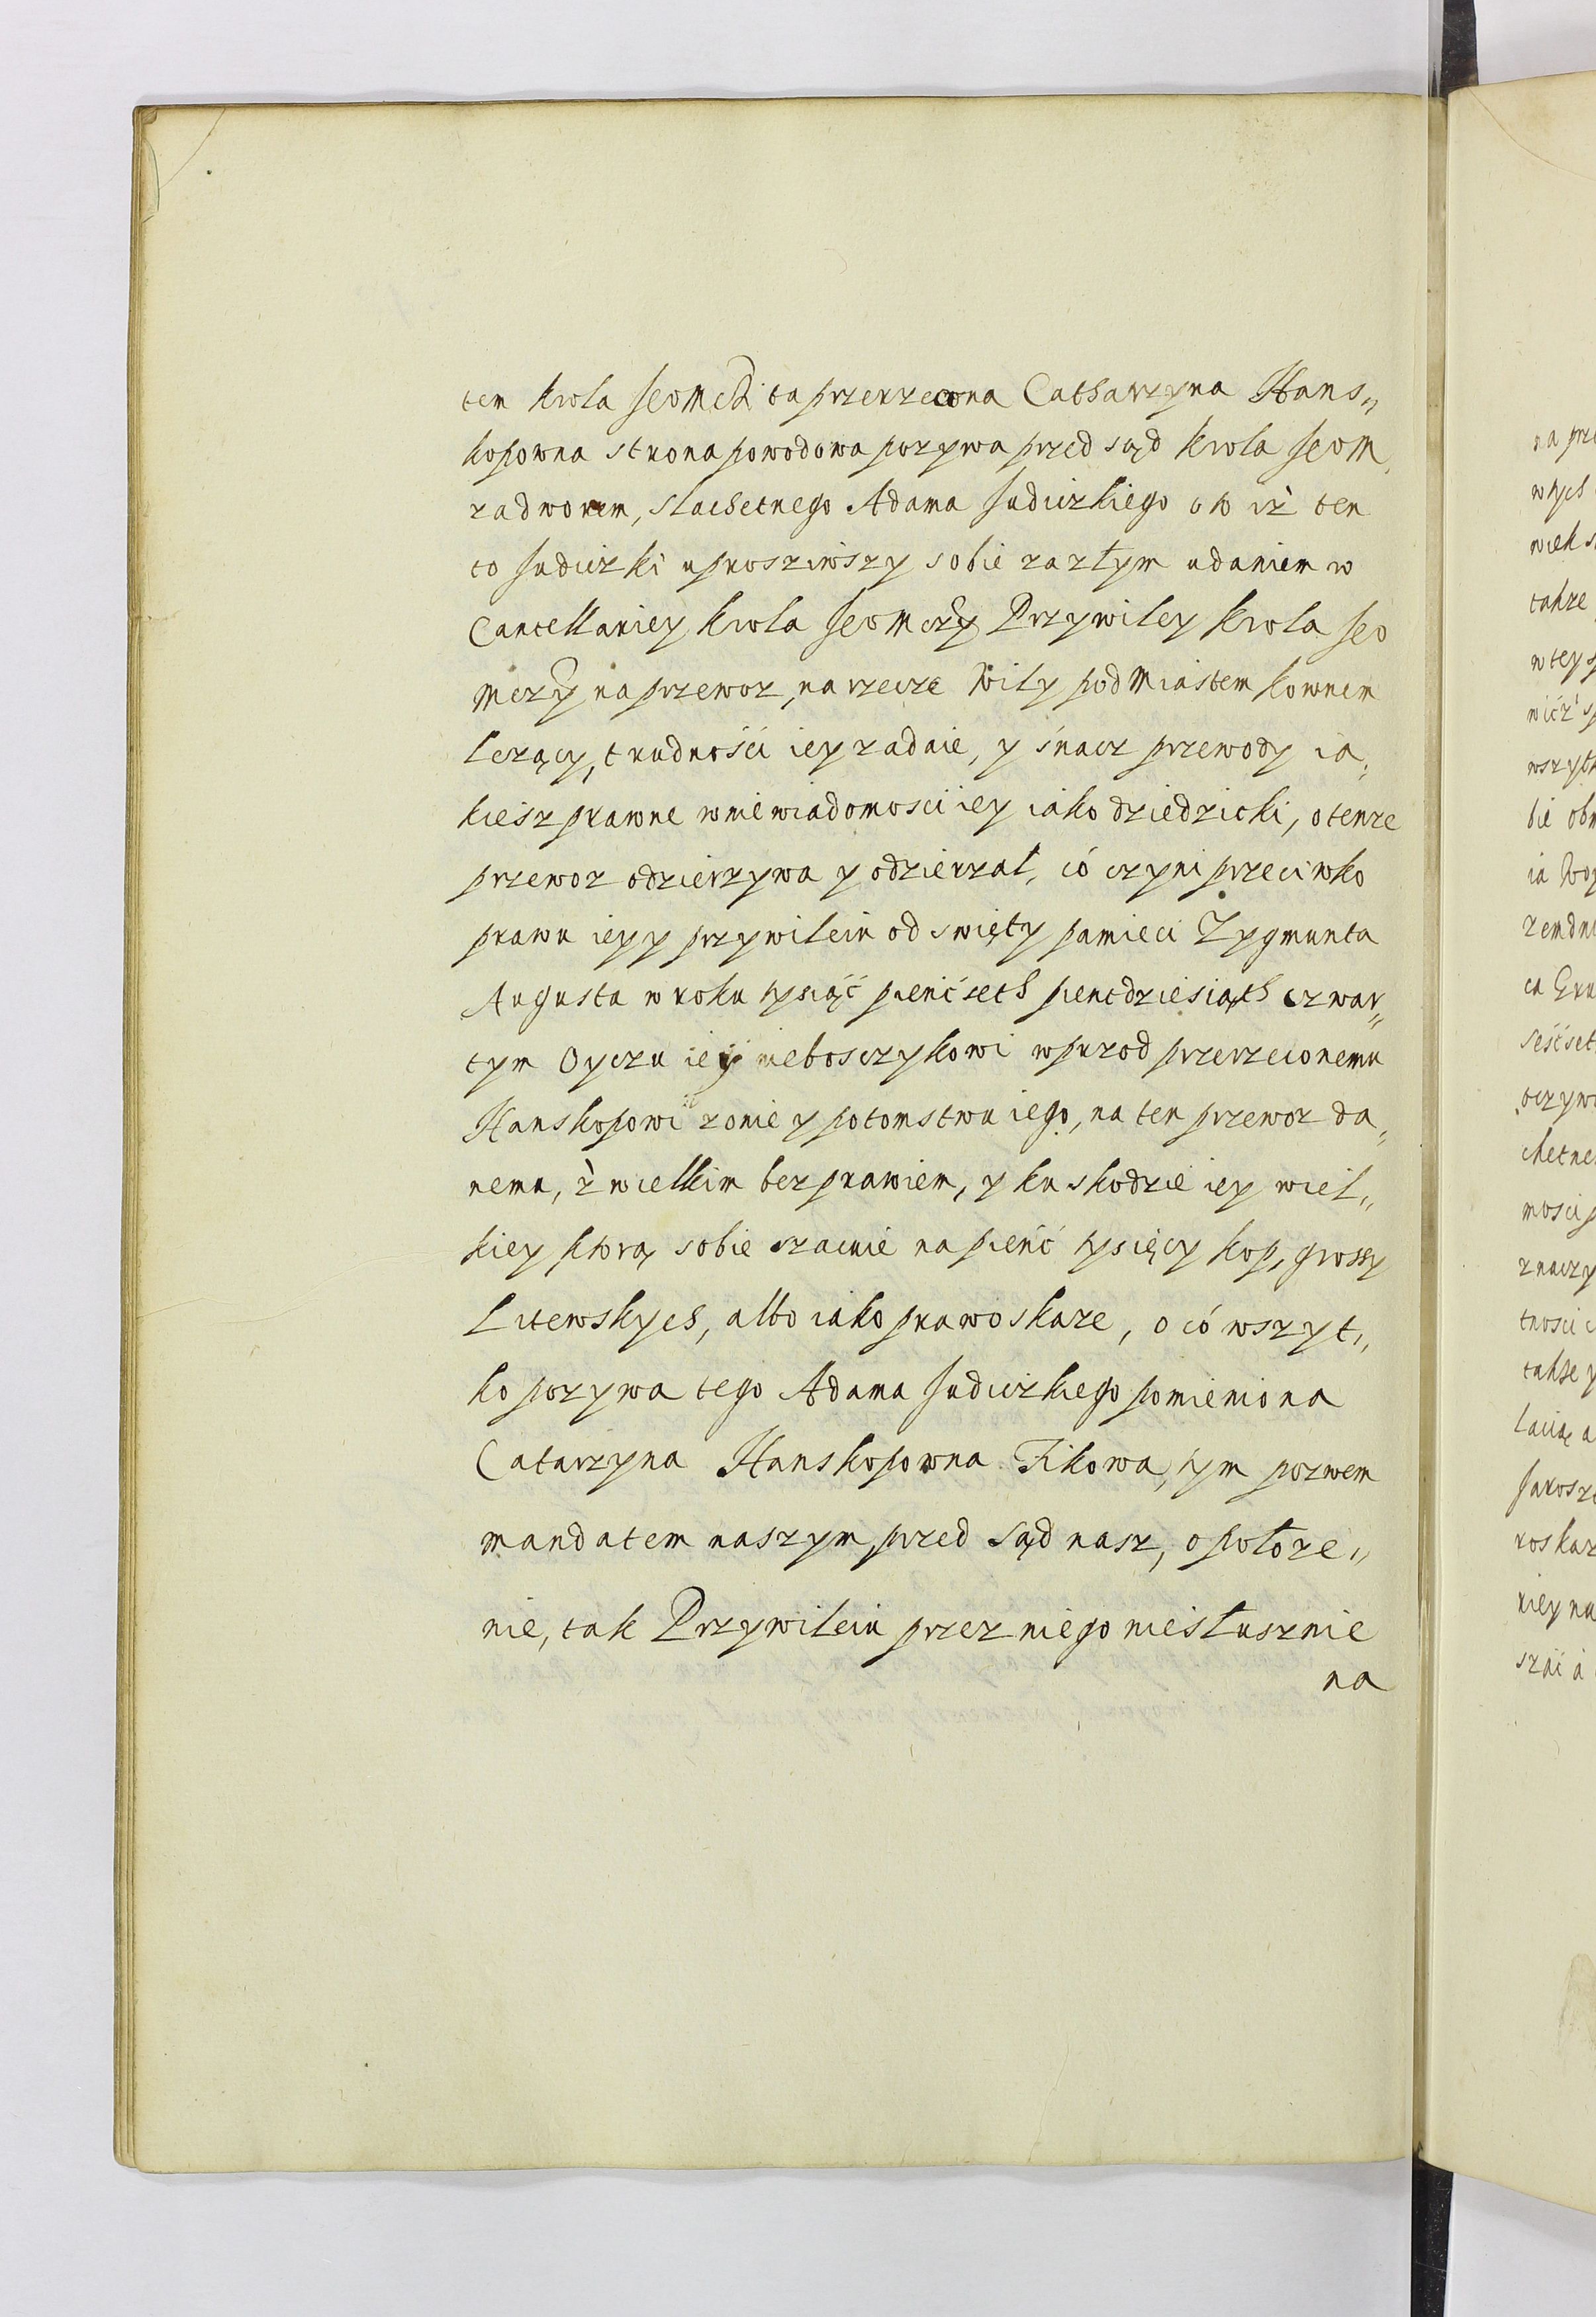 tem krola Jeomczi ta przerzeczona Catharzyna Hans„
kopowna strona powodowa pozywa przed sąd krola Jeom
zadworem, slachetnego Adama Judickiego o to iż ten
to Judicki uprosziwszy sobie zazłym udaniem w
Cancellariey krola Jeomczy Przywiley krola Jeo
mczy na przewoz, na rzecze Wily pod Miastem kownem
lezący, trudności iey zadaie, y snacz przewody ia„
kiesz prawne wniewiadomosci iey iako dziedzicki, o tenze
przewoz odzierzywa y odzierzał, co czyni przeciwko
prawu iey y przywileiu od swięty pamieci Zygmunta
Augusta w roku tysiąć pienćseth pientdziesiąth czwar„
tym Oyczu iey nieboszczykowi wprzod przerzeczonemu
Hanskopowi zonie y potomstwu iego, na ten przewoz da„
nemu, z wielkim bezprawiem, y ku skodzie iey wiel„
kiey ktorą sobie szacuie na pienć tysięcy kop, grossy
Litewskych, albo iako prawo skaze, o co wszyt„
ko pozywa tego Adama Judickiego pomieniona
Catarzyna Hanskopowna Fikowa, tym pozwem
mandatem naszym, przed sąd nasz, o położe„
nie, tak Przywileiu przez niego niesłusznie
na